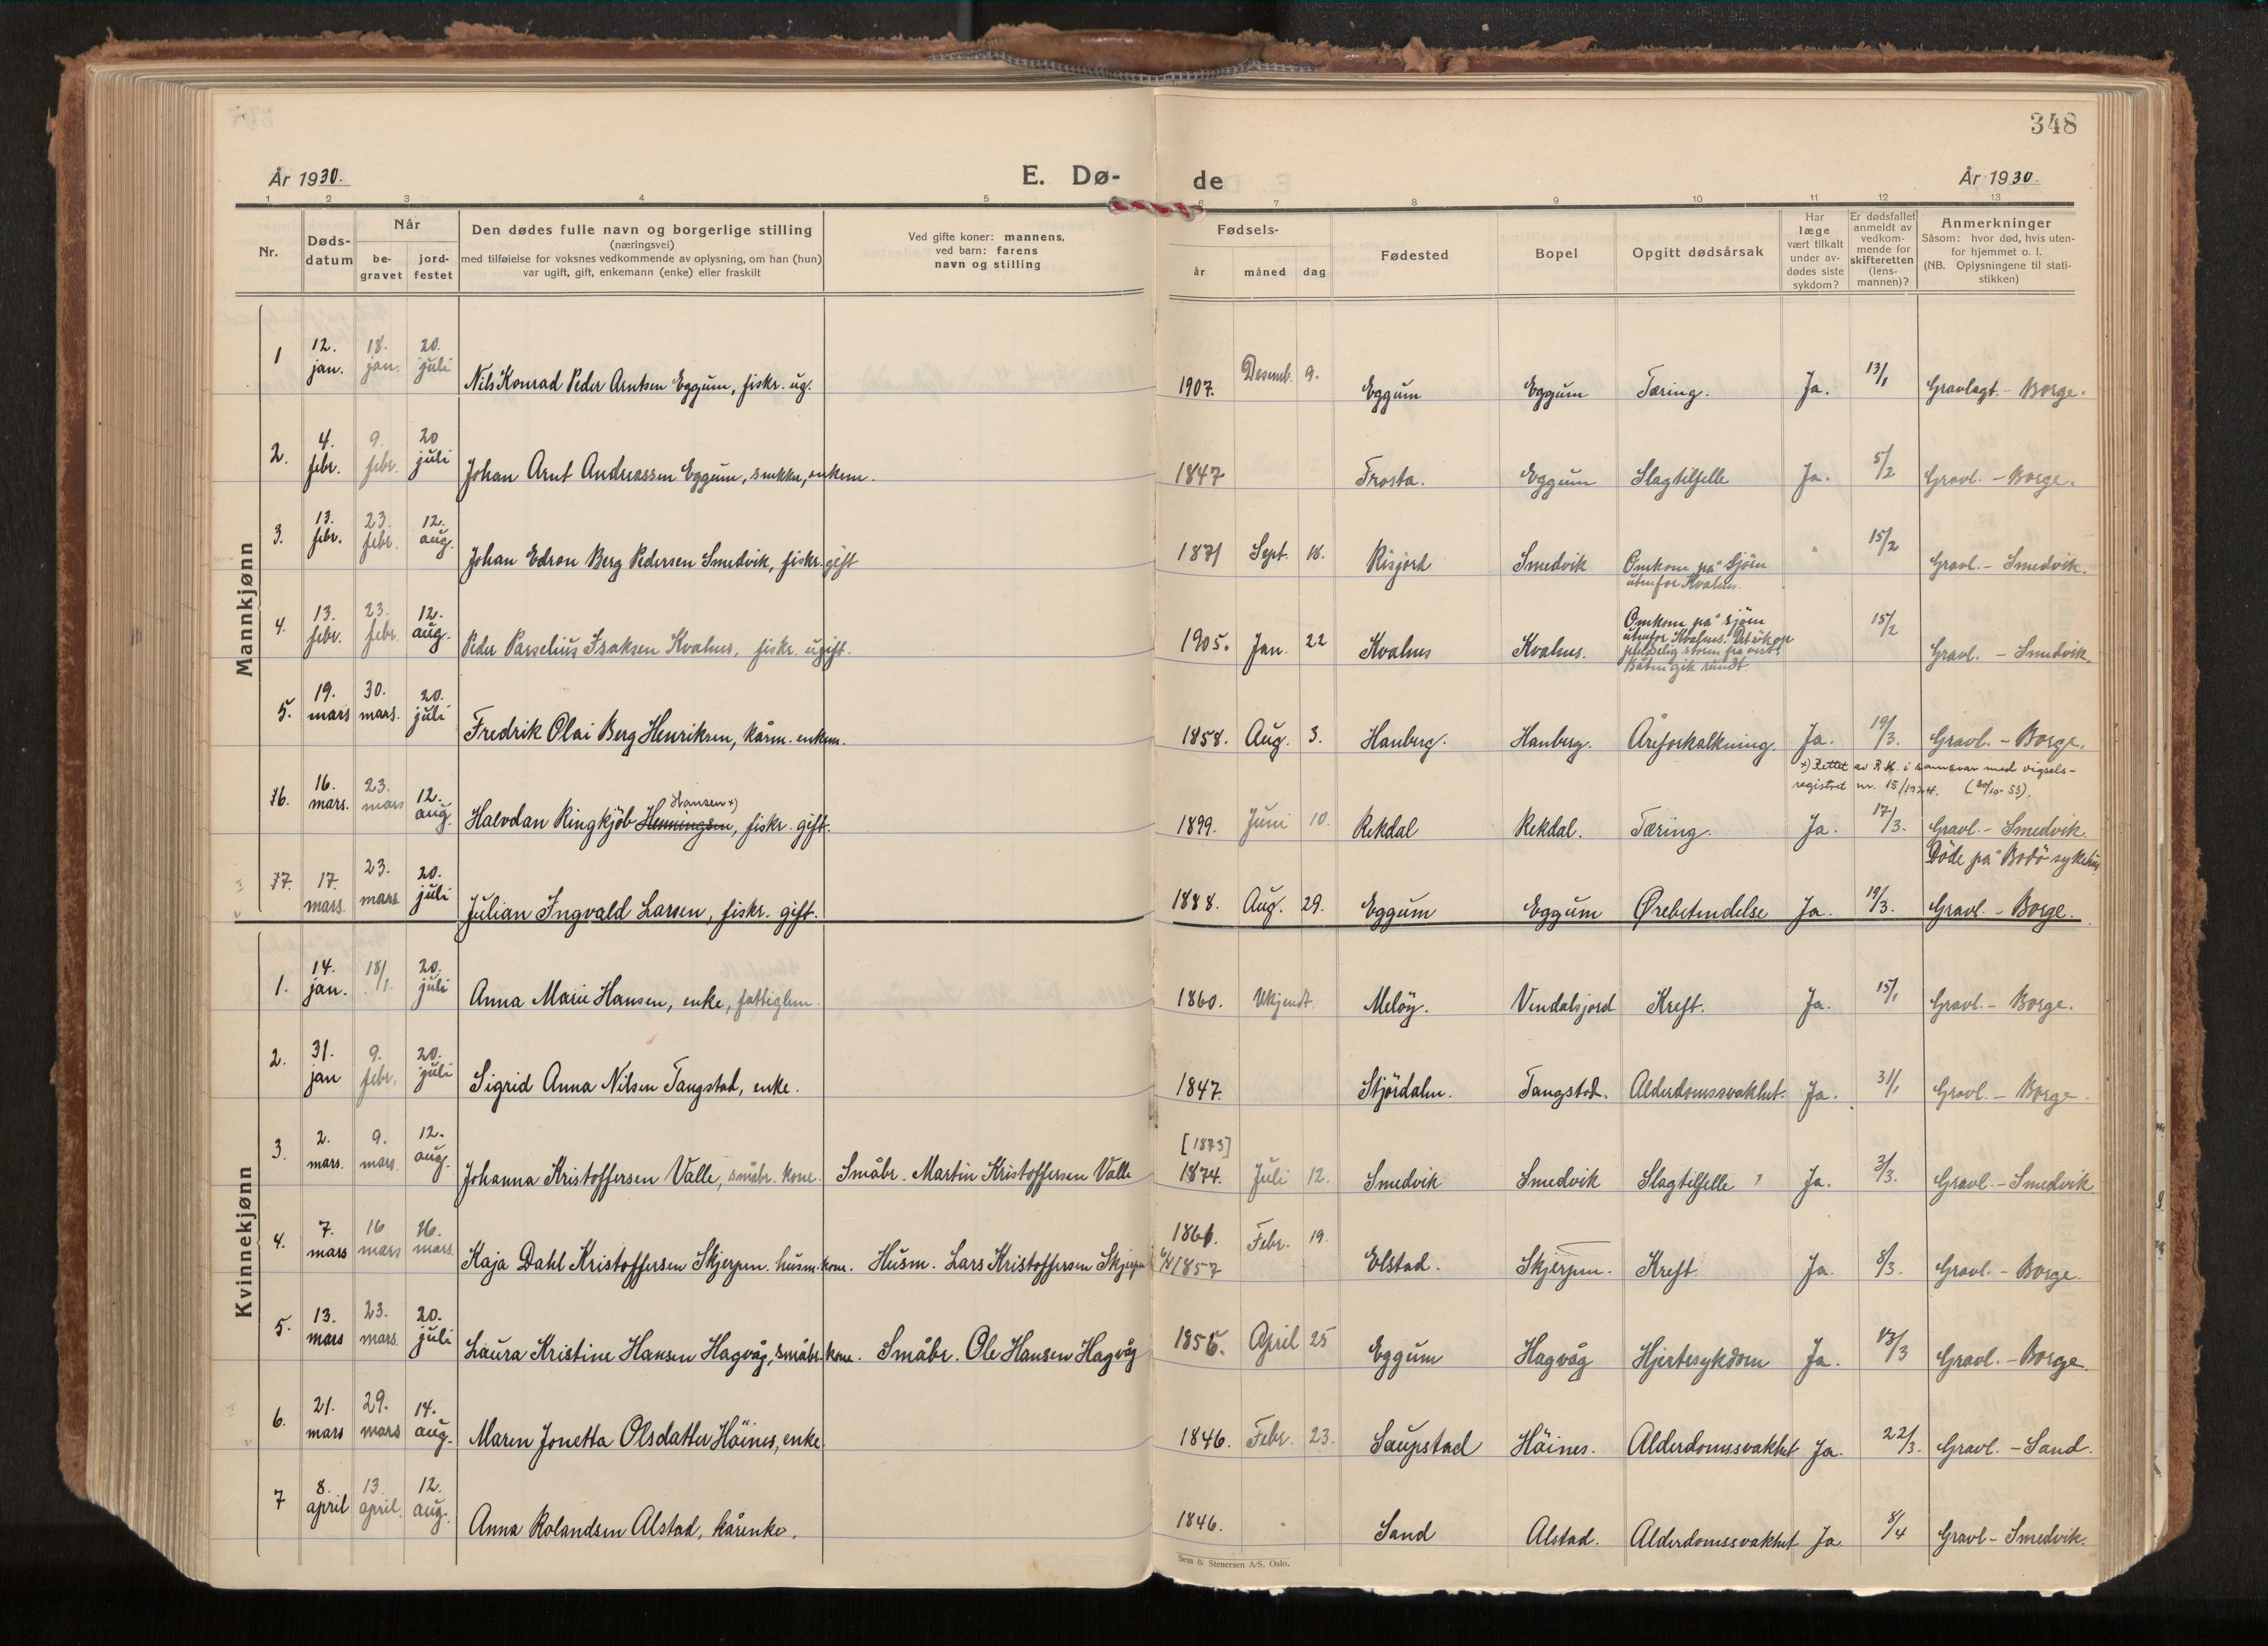 348
År 1930.
E. Dø-
de
År 1930.
1 2 3 4 5 6 7 8 9 10 11 12 13
Nr.
Døds-
datum
Når
be-
gravet
jord-
festet
Den dødes fulle navn og borgerlige stilling
(næringsvei)
med tilføielse for voksnes vedkommende av oplysning, om han (hun)
var ugift, gift, enkemann (enke) eller fraskilt
Ved gifte koner: mannens,
ved barn: farens
navn og stilling
Fødsels-
år
måned
dag
Fødested
Bopel
Opgitt dødsårsak
Har
læge
vært tilkalt
under av-
dødes siste
sykdom?
Er dødsfallet
anmeldt av
vedkom-
mende for
skifteretten
(lens-
mannen)?
Anmerkninger
Såsom: hvor død, hvis uten-
for hjemmet o. l.
(NB. Oplysningene til stati-
stikken)
Mannkjønn
1 12. jan. 18. jan. 20. juli Nils Konrad Peder Arntsen Eggum, fiskr. ug. 1907. Desemb. 9. Eggum Eggum Tæring. Ja. 13/1 Gravlagt - Borge.
2. 4. febr. 9. febr. 20 juli Johan Arnt Andreassen Eggum, snekker, enkem. 1847 Frosta. Eggum Slagtilfelle Ja. 5/2 Gravl. - Borge.
3. 13. febr. 23. febr. 12. aug. Johan Edron Berg Pedersen Smedvik, fiskr. gift 1871 Sept. 18. Risjord Smedvik Omkom på Sjöen
utenfor Kvalnes. " 15/2 Gravl. - Smedvik.
4. 13. febr. 23. febr. 12. aug. Peder Parselius Isaksen Kvalnes, fiskr. ugift. 1905. Jan. 22 Kvalnes Kvalnes. Omkom på sjöen
utenfor Kvalnes. Det rök op
pludselig storm fra vest.
Båten gik rundt. 15/2 Gravl. - Smedvik.
5. 19. mars 30. mars. 20. juli Fredrik Olai Berg Henriksen, kårm. enkem. 1858. Aug. 3. Hanberg. Hanberg. Åreforkalkning. Ja. 19/3. Gravl. - Borge.
x) Rettet av R.K. i samsvar med vigsels-
registret nr. 15/1924. (20/10-53).
6. 16. mars. 23. mars 12. aug. Halvdan Ringkjöb Henningsen, fiskr. gift. 1899. Juni 10. Rekdal Rekdal. Tæring. Ja. 17/3. Gravl. - Smedvik.
Hansen x)
Döde på Bodö sykehus
7. 17. mars. 23. mars 20. juli Julian Ingvald Larsen, fiskr. gift. 1888. Aug. 29. Eggum Eggum Ørebetendelse Ja. 19/3. Gravl. - Borge.
Kvinnekjønn
1. 14. jan. 18/1. 20. juli Anna Marie Hansen, enke, fattiglem. 1860. Ukjendt. Melöy. Vendalsjord Kreft. Ja. 15/1 Gravl. - Borge.
2. 31. jan 9. febr. 20. juli Sigrid Anna Nilsen Tangstad, enke. 1847. Stjördalen. Tangstad. Alderdomssvakhet. Ja. 31/1 Gravl. - Borge
[1873]
3. 2. mars. 9. mars. 12. aug. Johanna Kristoffersen Valle, småbr. kone. Småbr. Martin Kristoffersen Valle 1874. Juli 12. Smedvik Smedvik Slagtilfelle Ja. 3/3. Gravl. - Smedvik.
4. 7. mars 16 mars 16. mars. Kaja Dahl Kristoffersen Skjerpen. husm. kone. Husm. Lars Kristoffersen Skjerpen 1861. Febr. 19. Elstad. Skjerpen. Kreft. Ja. 8/3. Gravl. - Borge.
1857
5. 13. mars 23. mars. 20. juli Laura Kristine Hansen Hagvåg, småbr. kone. Småbr. Ole Hansen Hagvåg 1856. April 25 Eggum Hagvåg Hjertesykdom Ja. 13/3 Gravl. - Borge.
6. 21. mars 29. mars 14. aug. Maren Jonetta Olsdatter Höines, enke. 1846. Febr. 23. Saupstad Höines. Alderdomssvakhet Ja. 22/3. Gravl. - Sand.
7 8. april 13. april. 12. aug. Anna Rolandsen Alstad, kårenke. 1846. Sand Alstad. Alderdomssvakhet Ja 8/4 Gravl - Smedvik.
Sem & Stenersen A/S, Oslo.